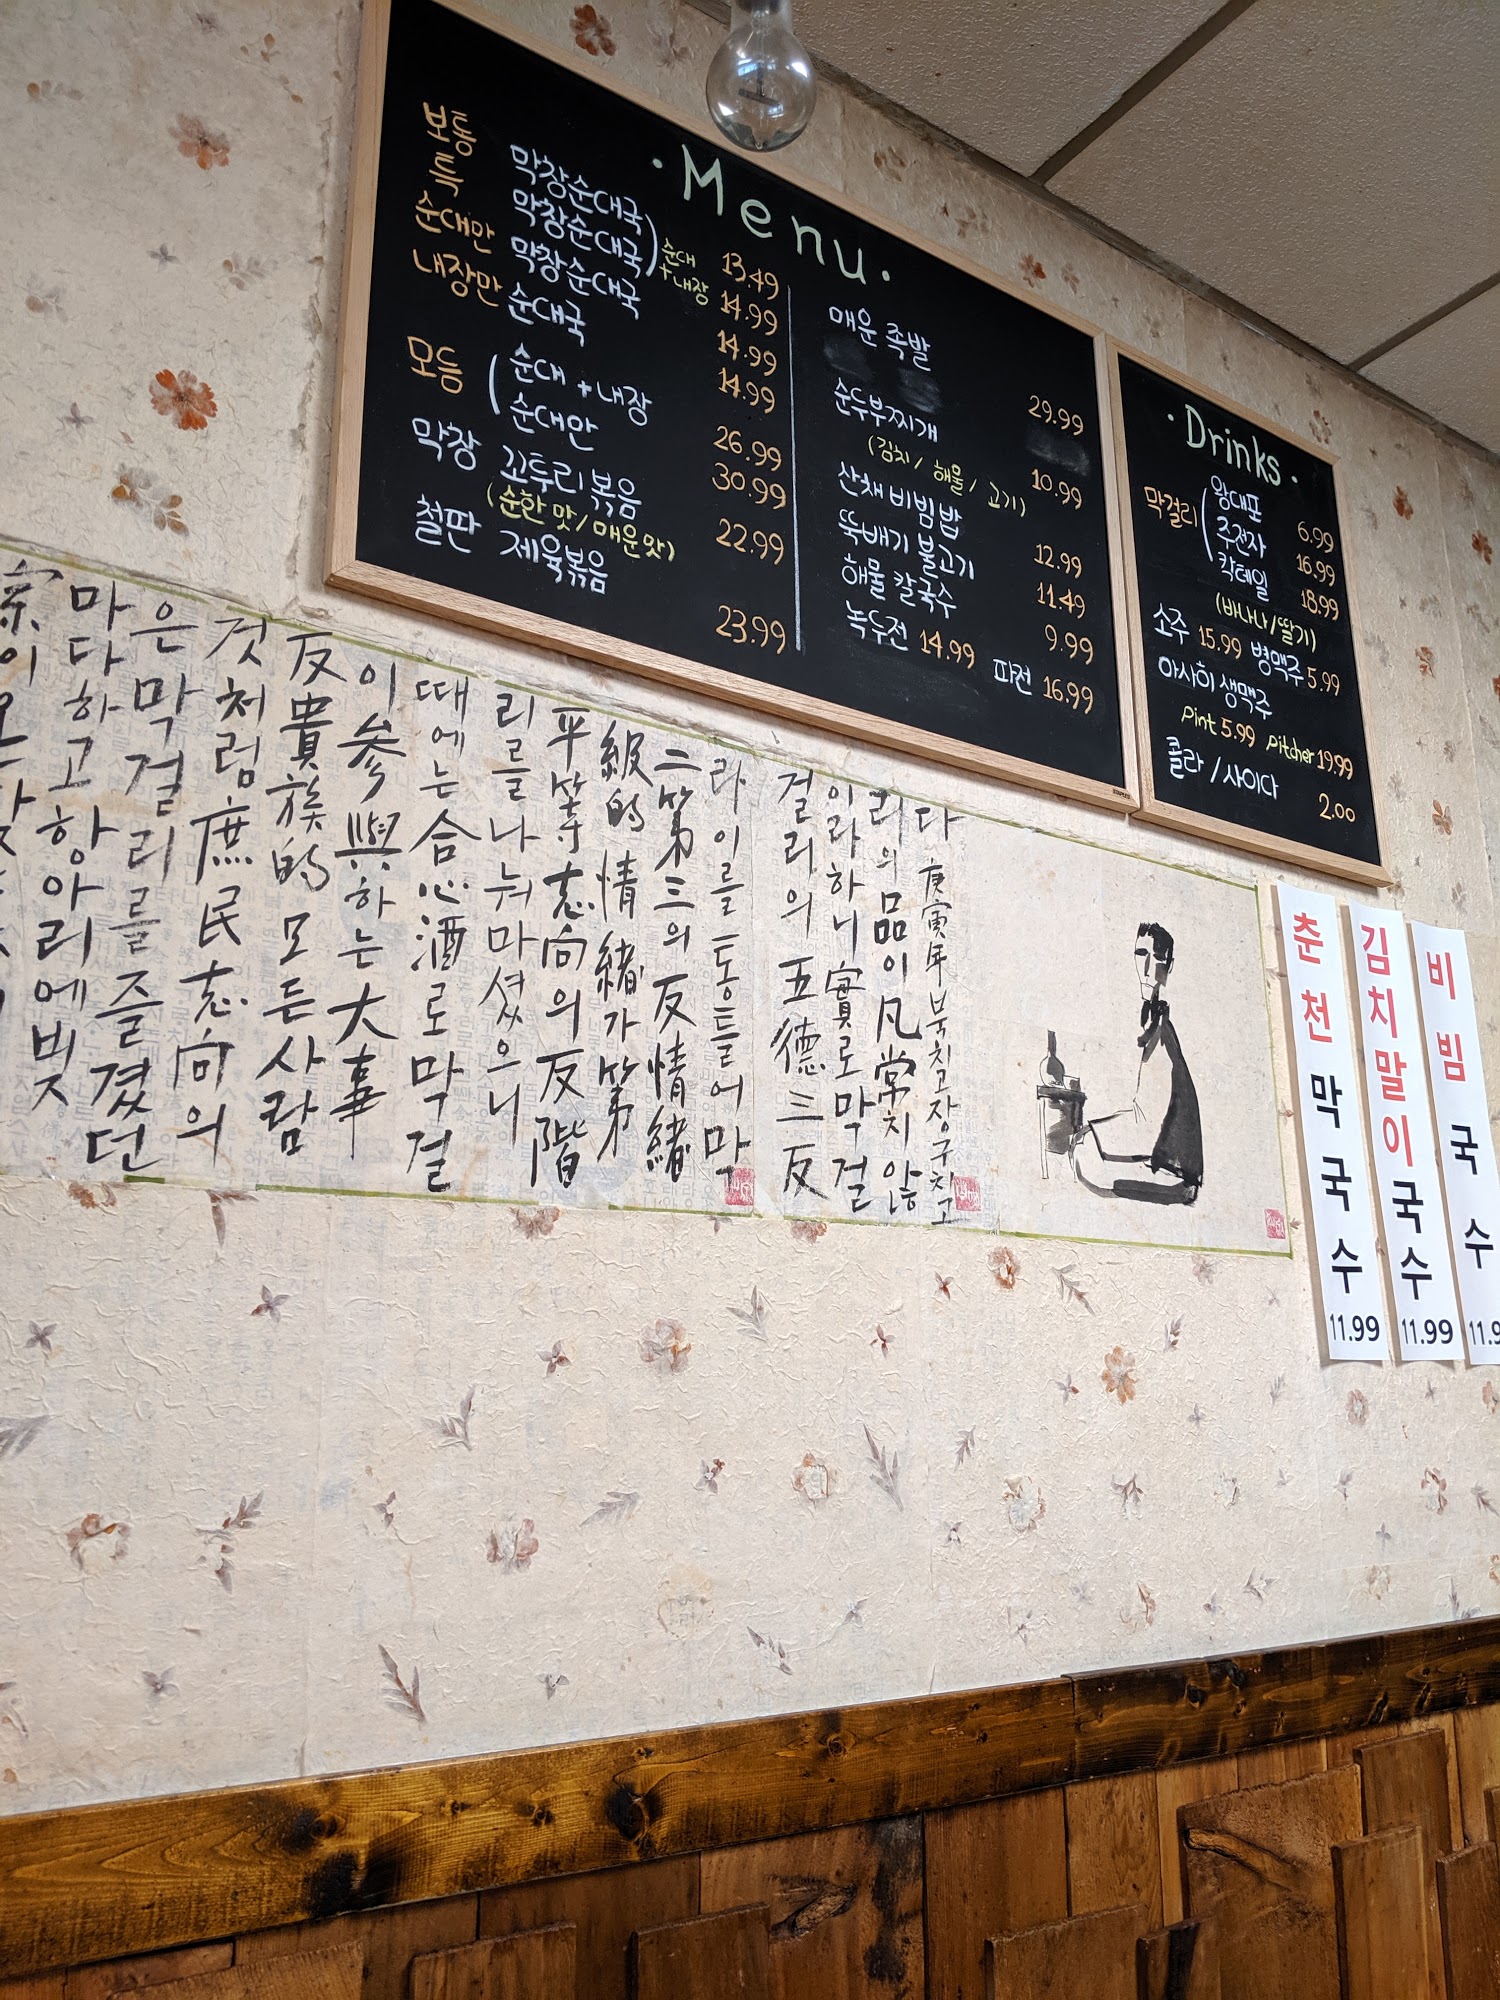 · Menu ·
보통 막창순대국 13.49
특 막창순대국 14.99
순대+내장
순대만 막창순대국 14.99
내장만 순대국 14.99
모듬 순대+내장 26.99
순대만 30.99
막창 꼬투리볶음 22.99
(순한맛/매운맛)
철판 제육볶음 23.99
매운 족발 29.99
순두부찌개 10.99
(김치/해물/고기)
산채비빔밥 12.99
뚝배기 불고기 11.49
해물 칼국수 9.99
녹두전 14.99 파전 16.99
· Drinks ·
막걸리 왕대포 6.99
주전자 16.99
칵테일 18.99
(바나나/딸기)
소주 15.99 병맥주 5.99
아사히 생맥주
Pint 5.99 Pitcher 19.99
콜라/사이다 2.00
마다하고 항아리에 빚
은 막걸리를 즐겼던
것처럼 庶民志向의
反貴族的 모든 사람
이 參與하는 大事
때에는 合心酒로 막걸
리를 나눠 마셨으니
平等志向의 反階
級的 情緖가 第
二 第三의 反情緖
라 이를 통틀어 막
걸리의 五德三反
이라 하니 實로 막걸
리의 品이 凡常치 않
다 庚寅年 북치고 장구치고
춘천막국수 11.99
김치말이국수 11.99
비빔국수